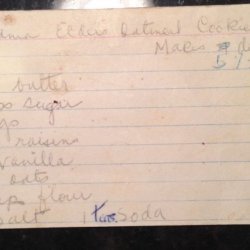 ama Elders Oatmeal Cookie
Makes # d
5 1/
butter
ps sugar
gs
raisins
vanilla
oats
up flour
salt 1 tsp. soda